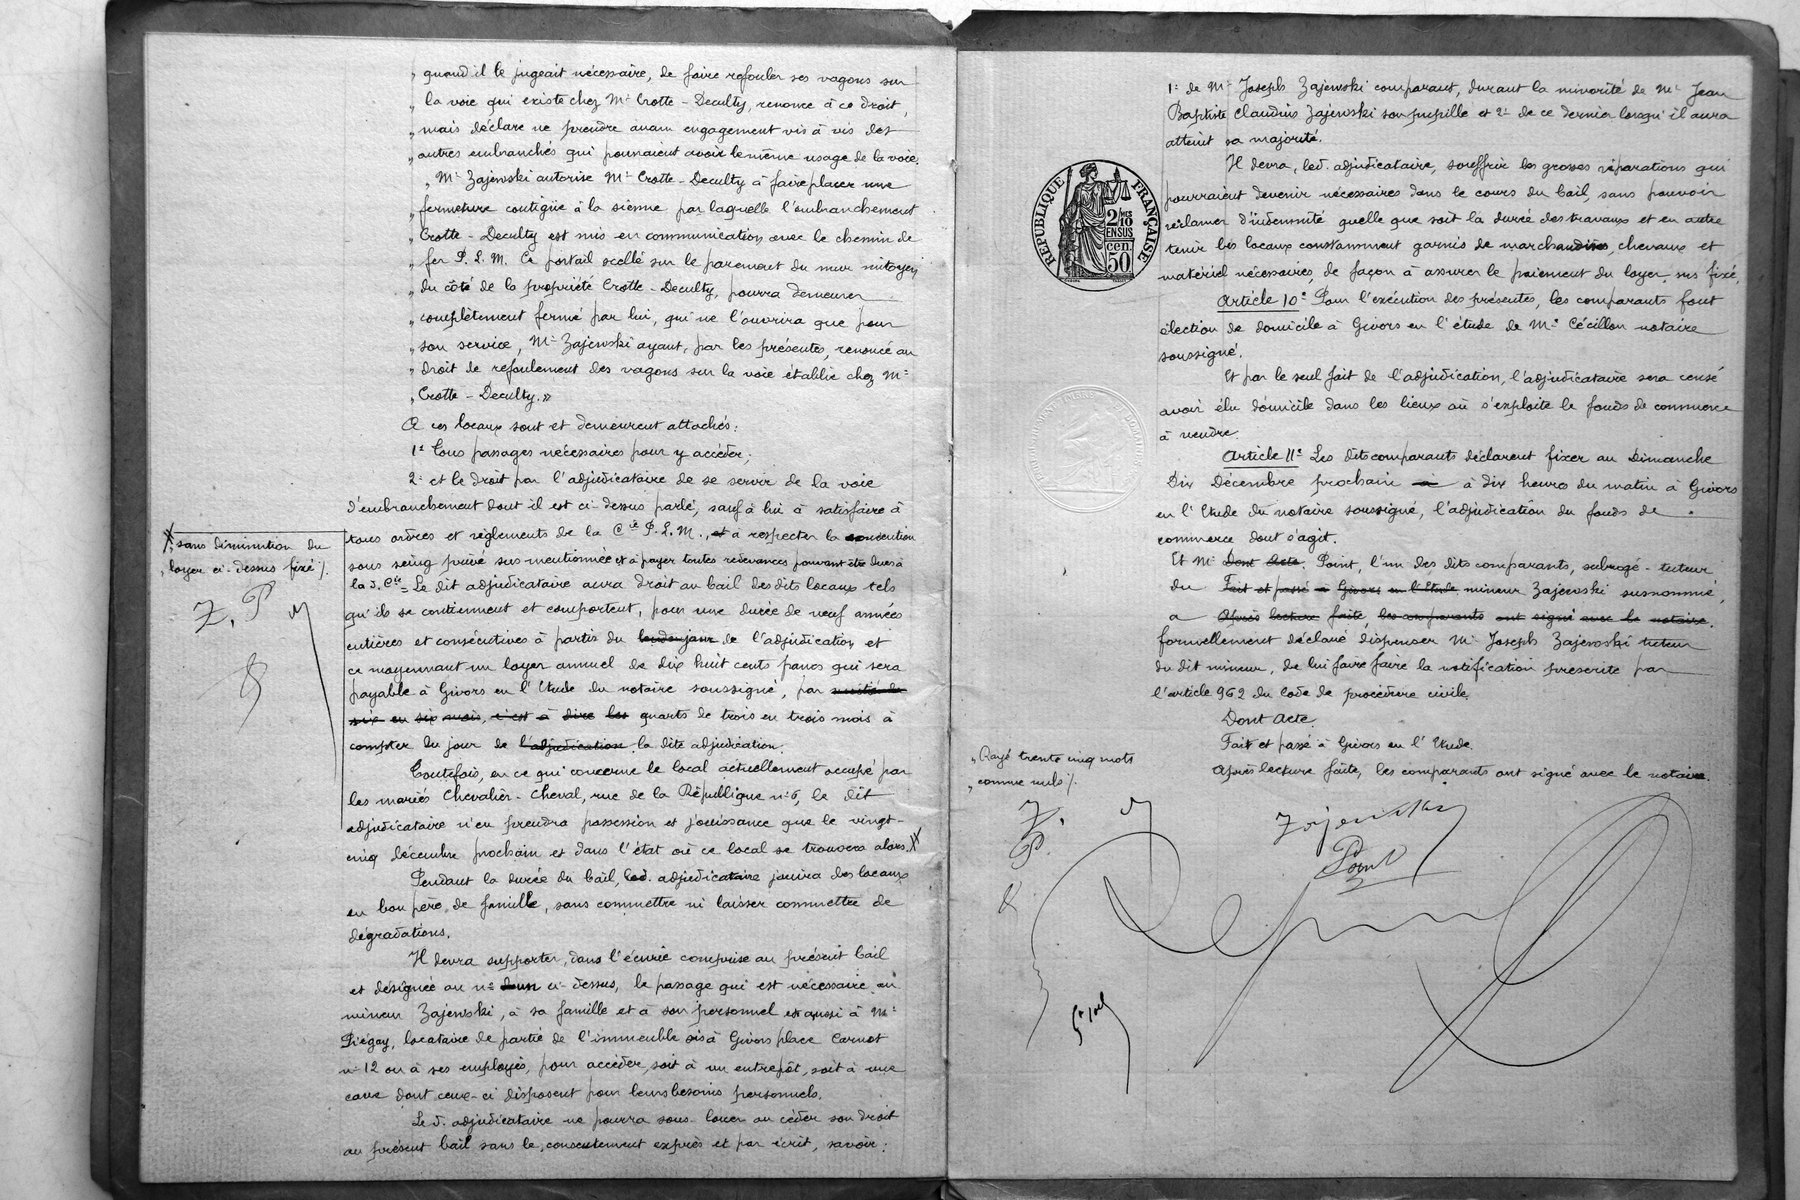 „ quand il le jugeait nécessaire, de faire refouler ses vagons sur
„ la voie qui existe chez Mr Crotte-Deculty, renonce à ce droit
„ mais déclare ne prendre aucun engagement vis à vis des
„ autres embranchés qui pourraient avoir le même usage de la voie.
„ Mr Zajewski autorise Mr Crotte-Deculty à faire placer une
„ fermeture contigüe à la sienne par laquelle l'embranchement
„ Crotte-Deculty est mis en communication avec le chemin de
„ fer P.L.M. Ce portail scellé sur le parement du mur mitoyen
„ du côté de la propriété Crotte-Deculty, pourra demeurer
„ complètement fermé par lui, qui ne l'ouvrira que pour
„ son service, Mr Zajewski ayant, par les présentes, renoncé au
„ droit de refoulement des vagons sur la voie établie chez Mr
„ Crotte-Deculty.»
A ces locaux sont et demeurent attachés:
1º Tous passages nécessaires pour y accéder;
2º et le droit par l'adjudicataire de se servir de la voie
d'embranchement dont il est ci-dessus parlé, sauf à lui à satisfaire à
tous ordres et règlements de la Cie P.L.M., et a respecter la convention
sous seing privé sus mentionnée et à payer toutes redevances pouvant être dues à
la d. Cie = Le dit adjudicataire aura droit au bail des dits locaux tels
qu'ils se contiennent et comportent, pour une durée de neuf années
entières et consécutives à partir du lendemain de l'adjudication et
ce moyennant un loyer annuel de dix huit cents francs qui sera
payable à Givors en l'Etude du notaire soussigné, par moitié de
six en six mois, c'est à dire les quarts de trois en trois mois à
compter du jour de l'adjudication la dite adjudication.
Toutefois, en ce qui concerne le local actuellement occupé par
les mariés Chevalier-Cheval, rue de la République nº 6, le dit
adjudicataire n'en prendra possession et jouissance que le vingt-
cinq décembre prochain et dans l'état où ce local se trouvera alors. X
Pendant la durée du bail, led. adjudicataire jouira des locaux
en bon père de famille, sans commettre ni laisser commettre de
dégradations.
Il devra supporter, dans l'écurie comprise au présent bail
et désignée au nº deux ci-dessus, le passage qui est nécessaire au
mineur Zajewski, à sa famille et à son personnel et aussi à Mr
Piégay, locataire de partie de l'immeuble sis à Givors place Carnot
nº 12 ou à ses employés, pour accéder, soit à un entrepôt, soit à une
cave dont ceux-ci disposent pour leurs besoins personnels.
Le d. adjudicataire ne pourra sous-louer ou céder son droit
au présent bail sans le consentement exprès et par écrit, savoir:
X sans diminution du
„ loyer ci-dessus fixé ./.
Z. P
1º de Mr Joseph Zajewski comparant, durant la minorité de Mr Jean
Baptiste Claudius Zajewski son pupille et 2º de ce dernier lorsqu'il aura
atteint sa majorité.
Il devra, led. adjudicataire, souffrir les grosses réparations qui
pourraient devenir nécessaires dans le cours du bail, sans pouvoir
réclamer d'indemnité quelle que soit la durée des travaux et en outre
tenir les locaux constamment garnis de marchandises, chevaux et
matériel nécessaires, de façon à assurer le paiement du loyer sus fixé.
Article 10º Pour l'exécution des présentes, les comparants font
élection de domicile à Givors en l'étude de Me Cécillon notaire
soussigné.
Et par le seul fait de l'adjudication, l'adjudicataire sera censé
avoir élu domicile dans les lieux où s'exploite le fonds de commerce
à vendre.
Article 11º Les dits comparants déclarent fixer au Dimanche
Dix Décembre prochain à à dix heures du matin à Givors
en l'Etude du notaire soussigné, l'adjudication du fonds de
commerce dont s'agit.
Et Mr Dont Acte. Point, l'un des dits comparants, subrogé-tuteur
du Fait et passé à Givors en l'Etude mineur Zajewski susnommé,
a Après lecture faite, les comparants ont signé avec le notaire.
formellement déclaré dispenser Mr Joseph Zajewski tuteur
du dit mineur, de lui faire faire la notification prescrite par
l'article 962 du Code de procédure civile.
Dont Acte.
Fait et passé à Givors en l'Etude.
Après lecture faite, les comparants ont signé avec le notaire.
„ Rayé trente cinq mots
„ comme nuls ./.
Z.
P.
Zajewski
Point
RÉPUBLIQUE FRANÇAISE
2/10
EN SUS
cen.
50